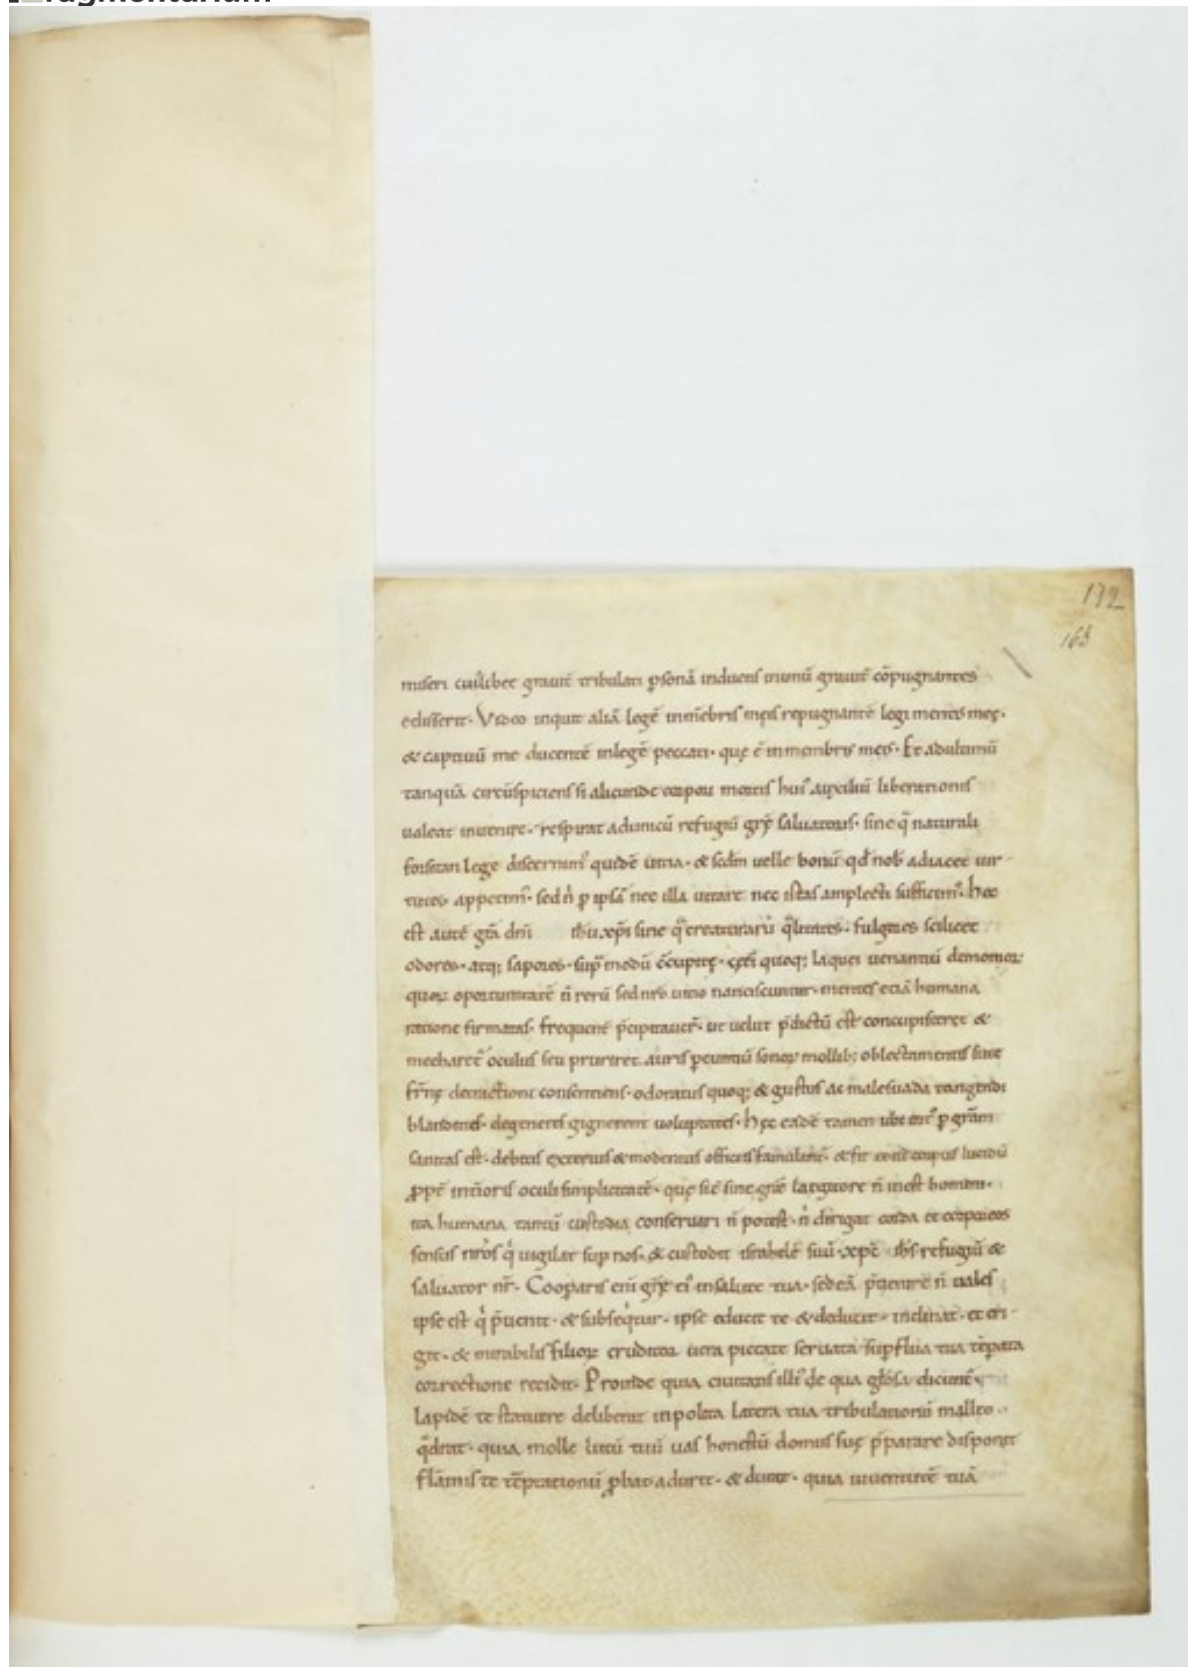 172
163
miseri cuilibet grauit̄ tribulati ꝑsonā induens inunū grauit̄ cōpugnantes
edisserit. Video inquit aliā legē inmēbris meis repugnantē legi mentis meę.
& captiuū me ducentē inlegē peccati. quę ē inmembris meis. Et adultimū
tanquā circūspiciens si alicunde corpori mortis hui᾿ auxiliū liberationis
ualeat inuenire. respirat adunicū refugiū grę̄ saluatoris. sine q̄ naturali
forsitan lege discernim᾿ quidē uitia. & scdm uelle bonū qd nob adiacet uir
tutes appetim᾿. sed n̄ ꝑ ipsā nec illa uitare nec istas amplecti sufficim᾿. hec
est autē gr̄a dn̄i ih̄u xp̄i sine q̄ creaturarū q̄litates. fulgores scilicet
odores. atq; sapores. sup̄ modū cupitę. quoq; laquei uenantiū demonioꝝ
quoꝝ oportunitatē n̄ rerū sed nr̄o uitio nanciscuntur. mentes etiā humana
ratione firmatas. frequent̄ p̄cipitauer̄. ut uelut p̄dictū est concupisceret &
mecharet᾿ oculus seu pruriret auris ꝑeuntiū sonoꝝ mollib; oblectamentis siue
fr̄nę detractioni consentiens. odoratus quoq; & gustus ac malesuada tangendi
blandities. degeneres gignerent uoluptates. hęc eadē tamen ubi ꝑ grām
sanitas est. debitis exterius & modestius officiis famulant̄. & fit corpus lucidū
ꝓpt̄ int̄ioris oculi simplicitatē. quę sic̄ sine grē largitore n̄ inest homini.
ita humana tantū custodia conseruari n̄ potest. n̄ dirigat corda et corporeos
sensus nr̄os q̇ uigilat sup nos. & custodit israhelē suū. xp̄c ih̄s refugiū &
saluator nr̄. Cooꝑaris eni grę̄ ei᾿ insalute tua. sed eā p̄uenire n̄ uales
ipse est q̇ p̄uenit. & subseq̇tur. ipse educit te & deducit. inclinat. et eri
git. & mirabilis filioꝝ eruditor uera pietate seruata suꝑflua tua tēꝑata
correctione recidit. Proinde quia ciuitatis illi᾿ de qua gl̄osa dicunt̄
lapidē te statuere deliberat inpolita latera tua tribulationū malleo
q̄drat. quia molle lutū tuū uas honestū domus suę p̄parare disponit
flāmis te tēptationū ꝓbat adurit. & durat. quia iuuentutē tuā